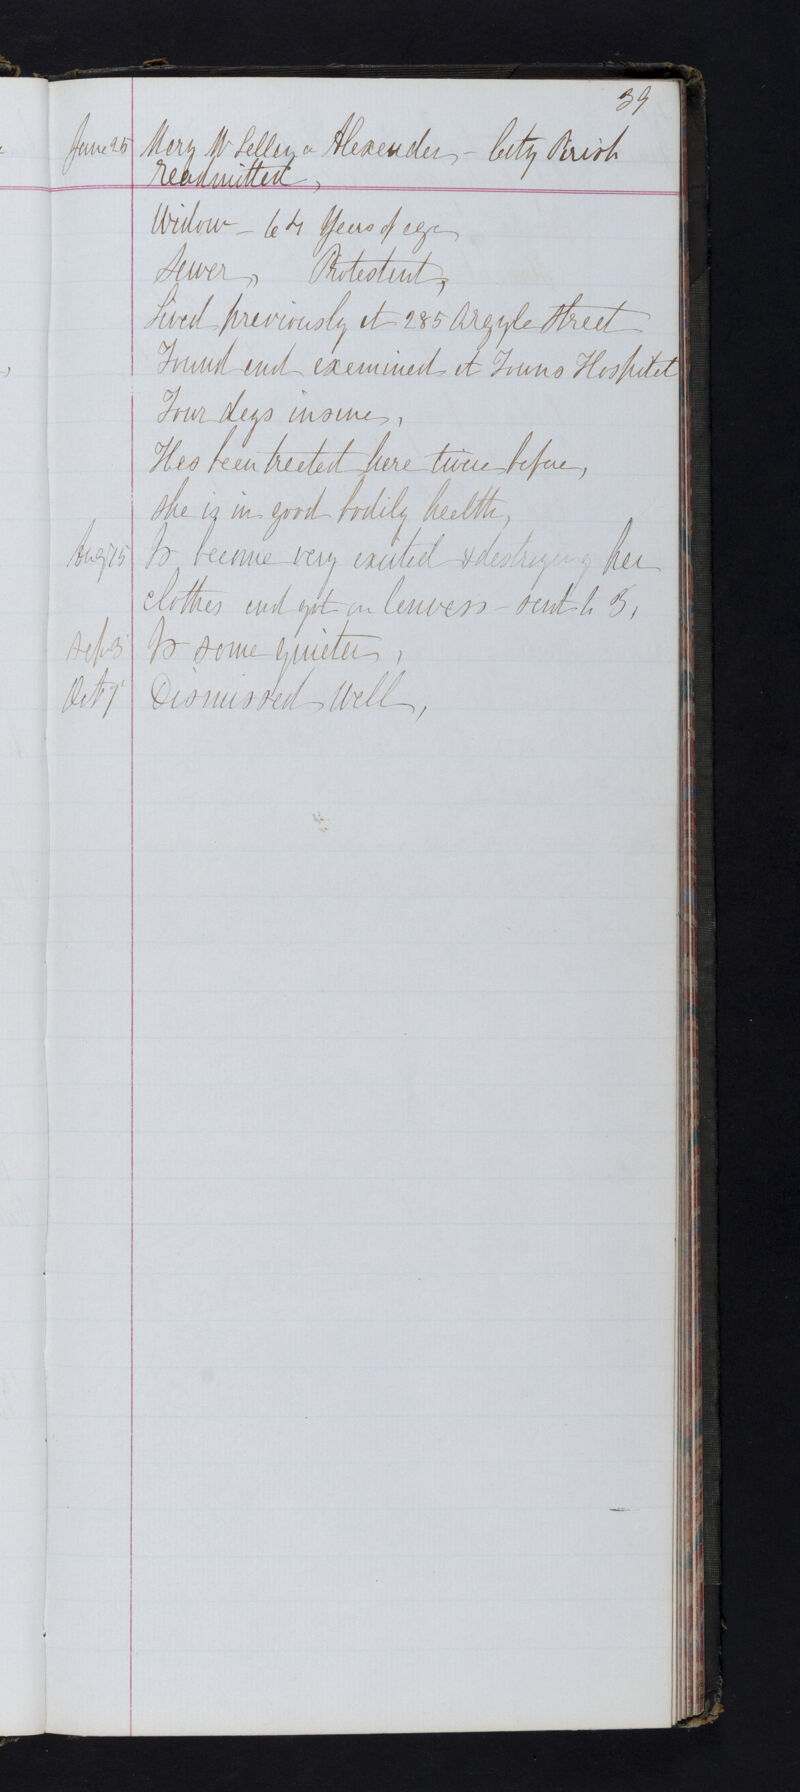 39
June 25 Mary Mc Lellan or Alexander - City Parish
readmitted,
Widow - 64 Years of age
Sewer, Protestant,
Lived previously at 285 Argyle Street
Found and examined at Towns Hospital
Four days insane,
Has been treated here twice before,
she is in good bodily health,
Aug 15 Is become very excited & destroying her
clothes and got on canvess - sent to 3,
Sep 3 Is some quieter,
Oct 9 Dismissed Well,